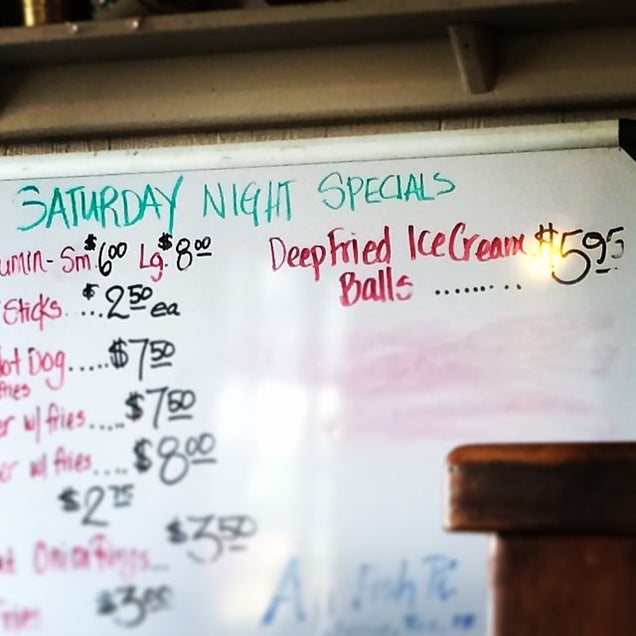 SATURDAY NIGHT SPECIALS
umin - Sm. $6.00 Lg. $8.00
Sticks....$2.50 ea
ot Dog.....$7.50
fries
er w/ fries.....$7.50
er w/ fries....$8.00
$2.75
Onion Rings... $3.50
Fries $3.00
Deep Fried Ice Cream $5.95
Balls .........
A